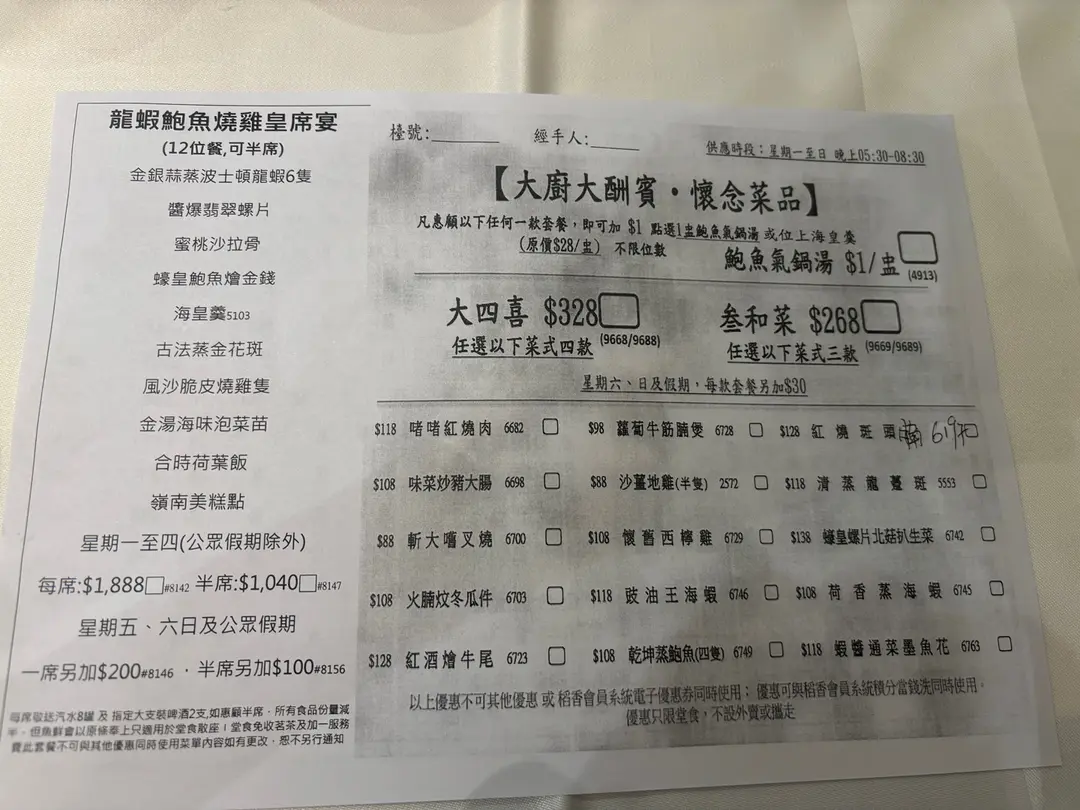 龍蝦鮑魚燒雞皇席宴
(12位餐,可半席)
金銀蒜蒸波士頓龍蝦6隻
醬爆翡翠螺片
蜜桃沙拉骨
蠔皇鮑魚燴金錢
海皇羹5103
古法蒸金花斑
風沙脆皮燒雞隻
金湯海味泡菜苗
合時荷葉飯
嶺南美糕點
星期一至四(公眾假期除外)
每席:$1,888□#8142 半席:$1,040□#8147
星期五、六日及公眾假期
一席另加$200#8146 · 半席另加$100#8156
每席敬送汽水8罐 及 指定大支裝啤酒2支,如惠顧半席﹐所有食品份量減
半﹐但魚鮮會以原條奉上只適用於堂食散座︱堂食免收茗茶及加一服務
費此套餐不可與其他優惠同時使用菜單內容如有更改﹐恕不另行通知
檯號:______ 經手人:_____
供應時段:星期一至日 晚上05:30-08:30
【大廚大酬賓·懷念菜品】
凡惠顧以下任何一款套餐,即可加 $1 點選1盅鮑魚氣鍋湯或位上海皇羹
(原價$28/盅) 不限位數
鮑魚氣鍋湯 $1/盅 □
(4913)
大四喜 $328□
任選以下菜式四款 (9668/9688)
叁和菜 $268□
任選以下菜式三款 (9669/9689)
星期六、日及假期,每款套餐另加$30
$118 啫啫紅燒肉 6682 □ $98 蘿蔔牛筋腩煲 6728 □ $128 紅燒斑頭腩 619 □
$108 味菜炒豬大腸 6698 □ $88 沙薑地雞(半隻) 2572 □ $118 清蒸龍躉斑 5553 □
$88 斬大嚿叉燒 6700 □ $108 懷舊西檸雞 6729 □ $138 蠔皇螺片北菇扒生菜 6742 □
$108 火腩炆冬瓜件 6703 □ $118 豉油王海蝦 6746 □ $108 荷香蒸海蝦 6745 □
$128 紅酒燴牛尾 6723 □ $108 乾坤蒸鮑魚(四隻) 6749 □ $118 蝦醬通菜墨魚花 6763 □
以上優惠不可其他優惠 或 稻香會員系統電子優惠券同時使用; 優惠可與稻香會員系統積分當錢洗同時使用。
優惠只限堂食,不設外賣或攜走